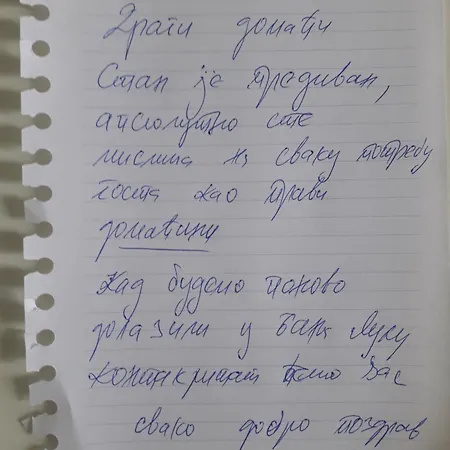 Драги домаћи
Стан је предиван,
апсолутно сте
мислила на сваку потребу
госта као прави
домаћини
Кад будемо поново
долазили у Бања Луку
контактираћемо вас
свако добро поздрав